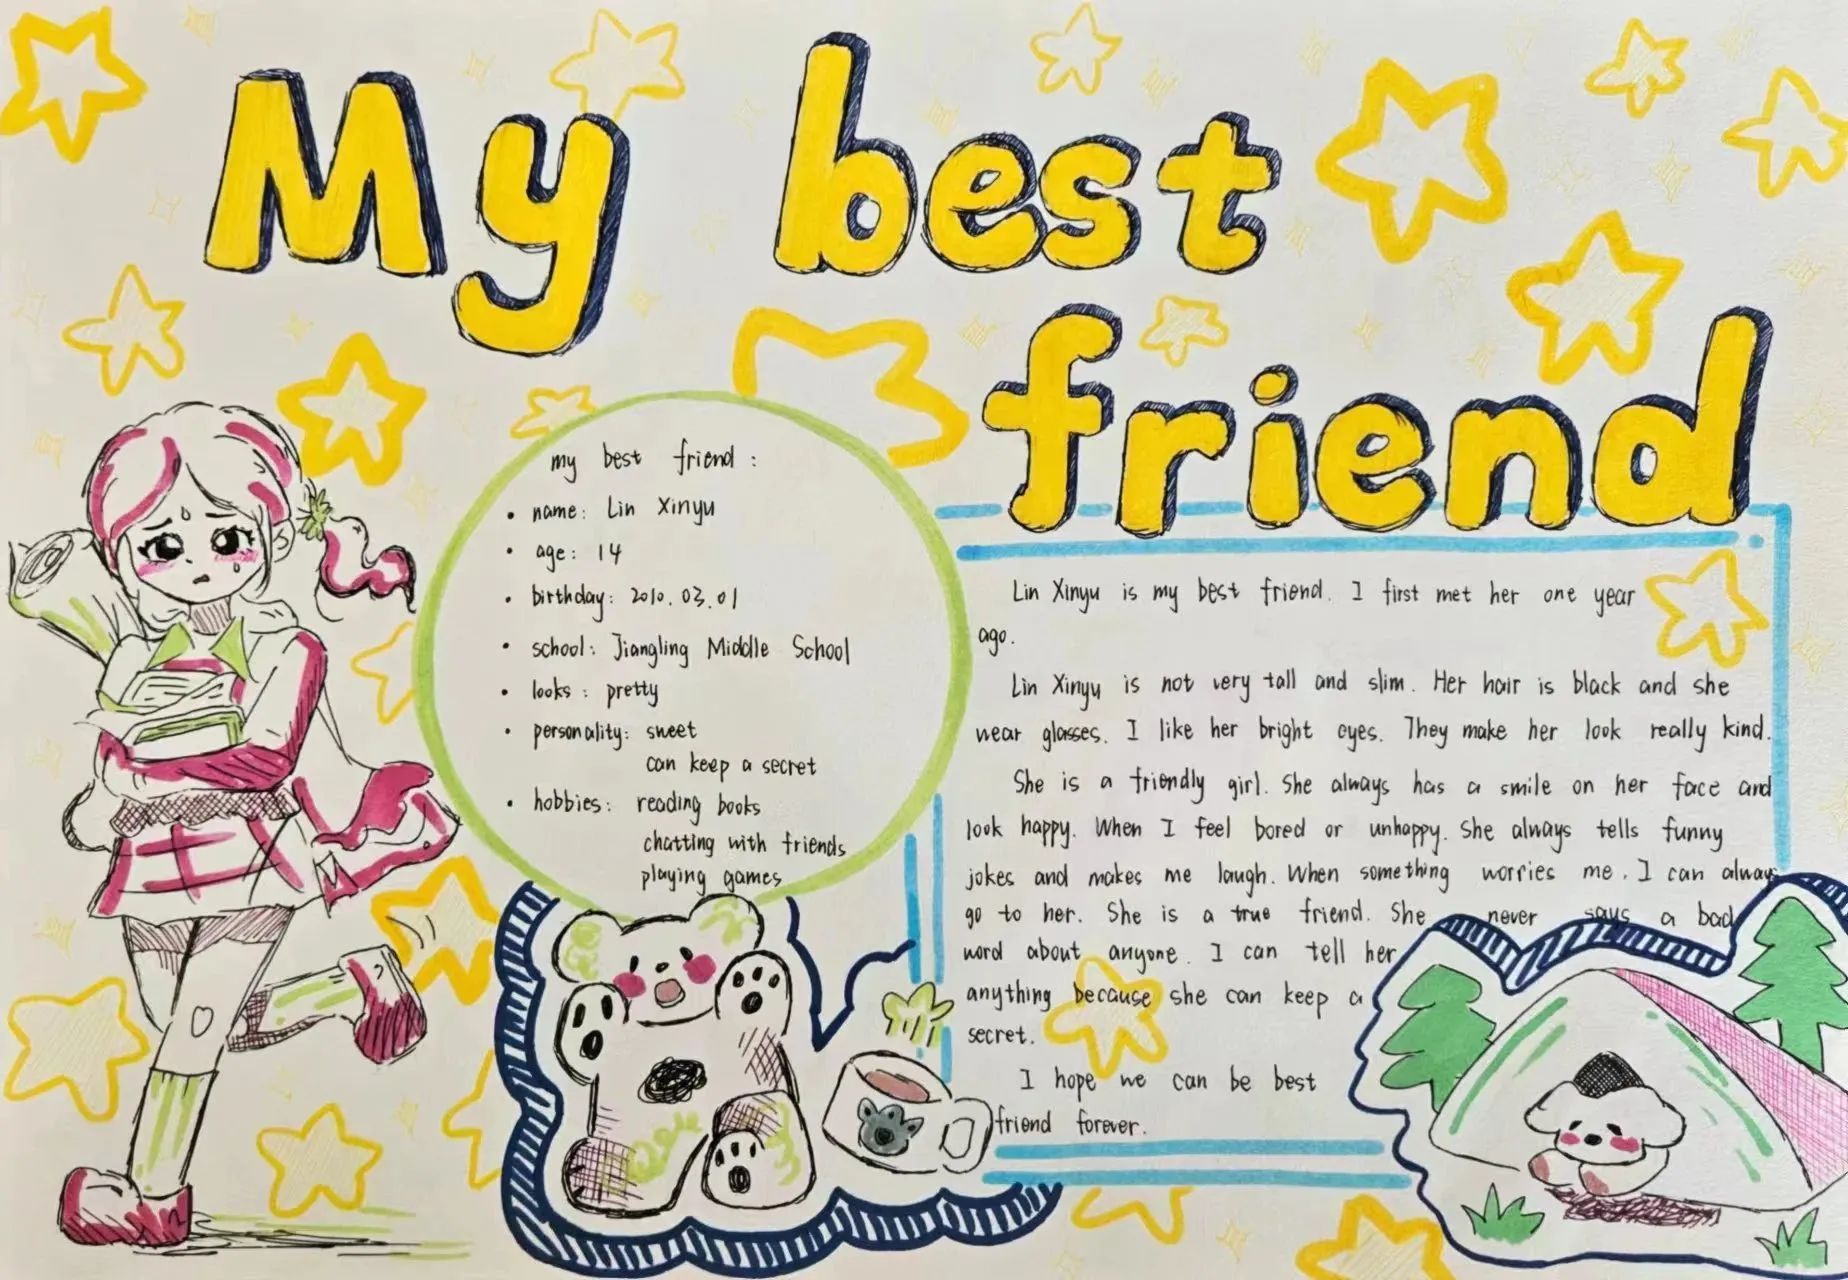 My best
friend
my best friend :
• name: Lin Xinyu
• age: 14
• birthday: 2010.03.01
• school: Jiangling Middle School
• looks : pretty
• personality: sweet
can keep a secret
• hobbies: reading books
chatting with friends
playing games
Lin Xinyu is my best friend. I first met her one year
ago.
Lin Xinyu is not very tall and slim. Her hair is black and she
wear glasses. I like her bright eyes. They make her look really kind.
She is a friendly girl. She always has a smile on her face and
look happy. When I feel bored or unhappy. She always tells funny
jokes and makes me laugh. When something worries me, I can always
go to her. She is a true friend. She never says a bad
word about anyone. I can tell her
anything because she can keep a
secret.
I hope we can be best
friend forever.